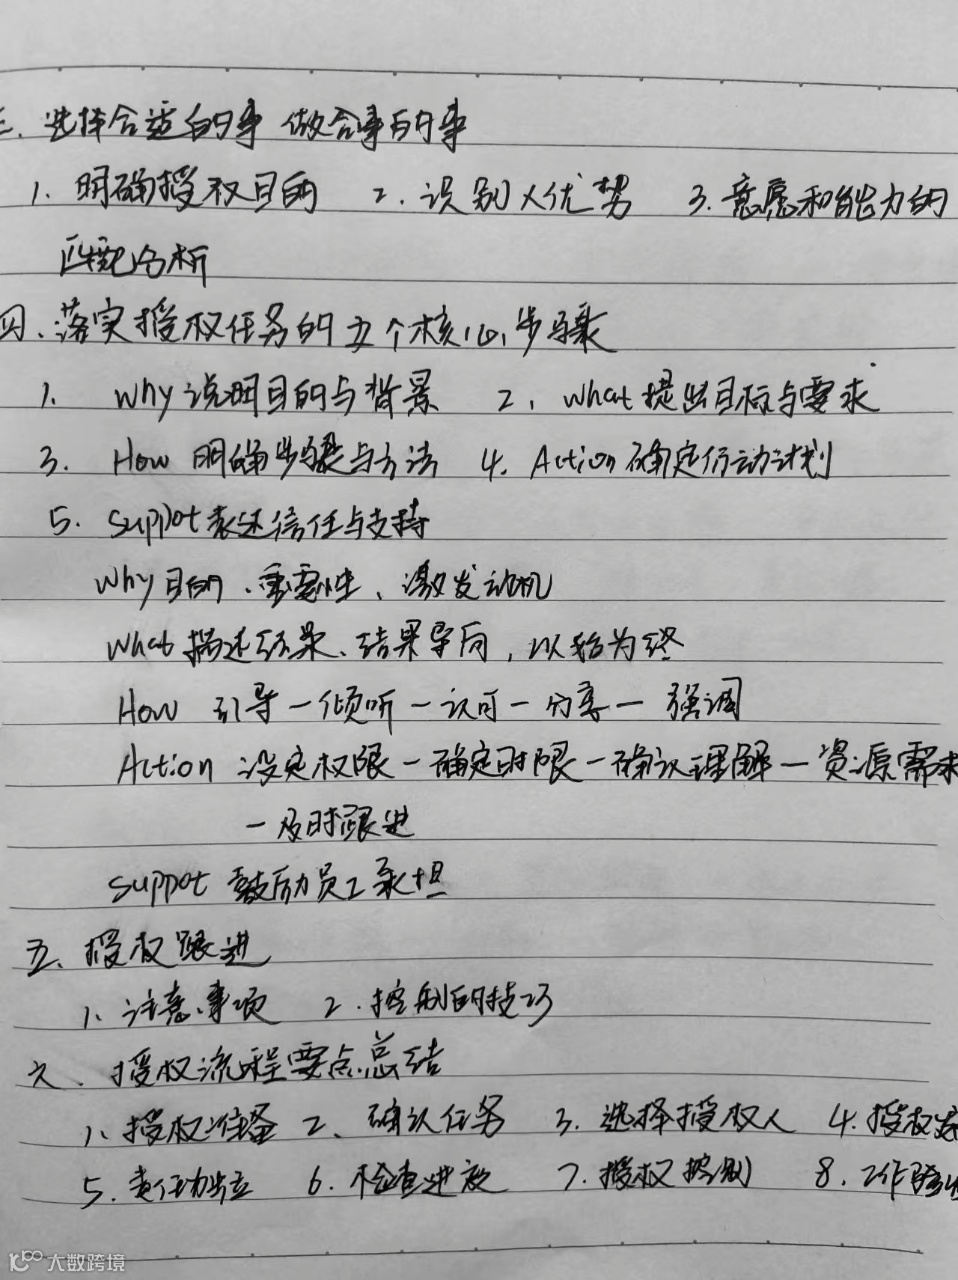 三、选择合适的事 做合事的事
1. 明确授权目的 2. 识别人优势 3. 意愿和能力的
匹配分析
四、落实授权任务的五个核心步骤
1. Why 说明目的与背景 2. What 提出目标与要求
3. How 明确步骤与方法 4. Action 确定行动计划
5. suppot 表达信任与支持
Why 目的、重要性、激发动机
What 描述结果、结果导向，以始为终
How 引导一倾听一认可一分享一强调
Action 设定权限一确定时限一确认理解一资源需求
一及时跟进
suppot 鼓励员工承担
五、授权跟进
1、注意事项 2. 控制的技巧
六、授权流程要点总结
1、授权准备 2、确认任务 3. 选择授权人 4. 授权
5. 责任 6. 检查进度 7. 授权控制 8. 工作
大数跨境